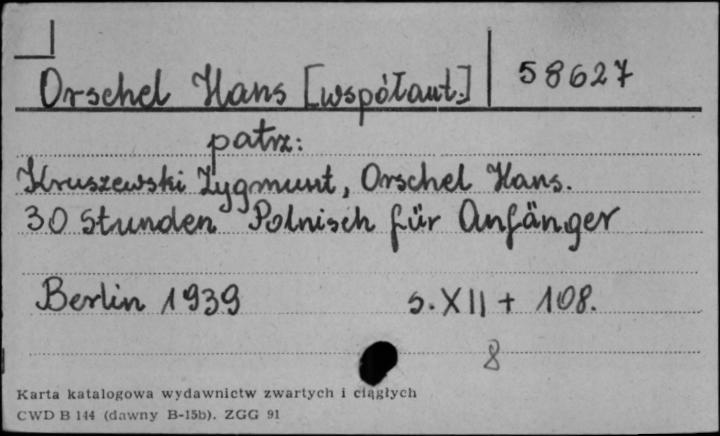 Orschel Hans [współaut.] 58627
patrz:
Kruszewski Zygmunt, Orschel Hans.
30 Stunden Polnisch für Anfänger
Berlin 1939 s. XII + 108.
8
Karta katalogowa wydawnictw zwartych i ciągłych
CWD B 144 (dawny B-15b). ZGG 91